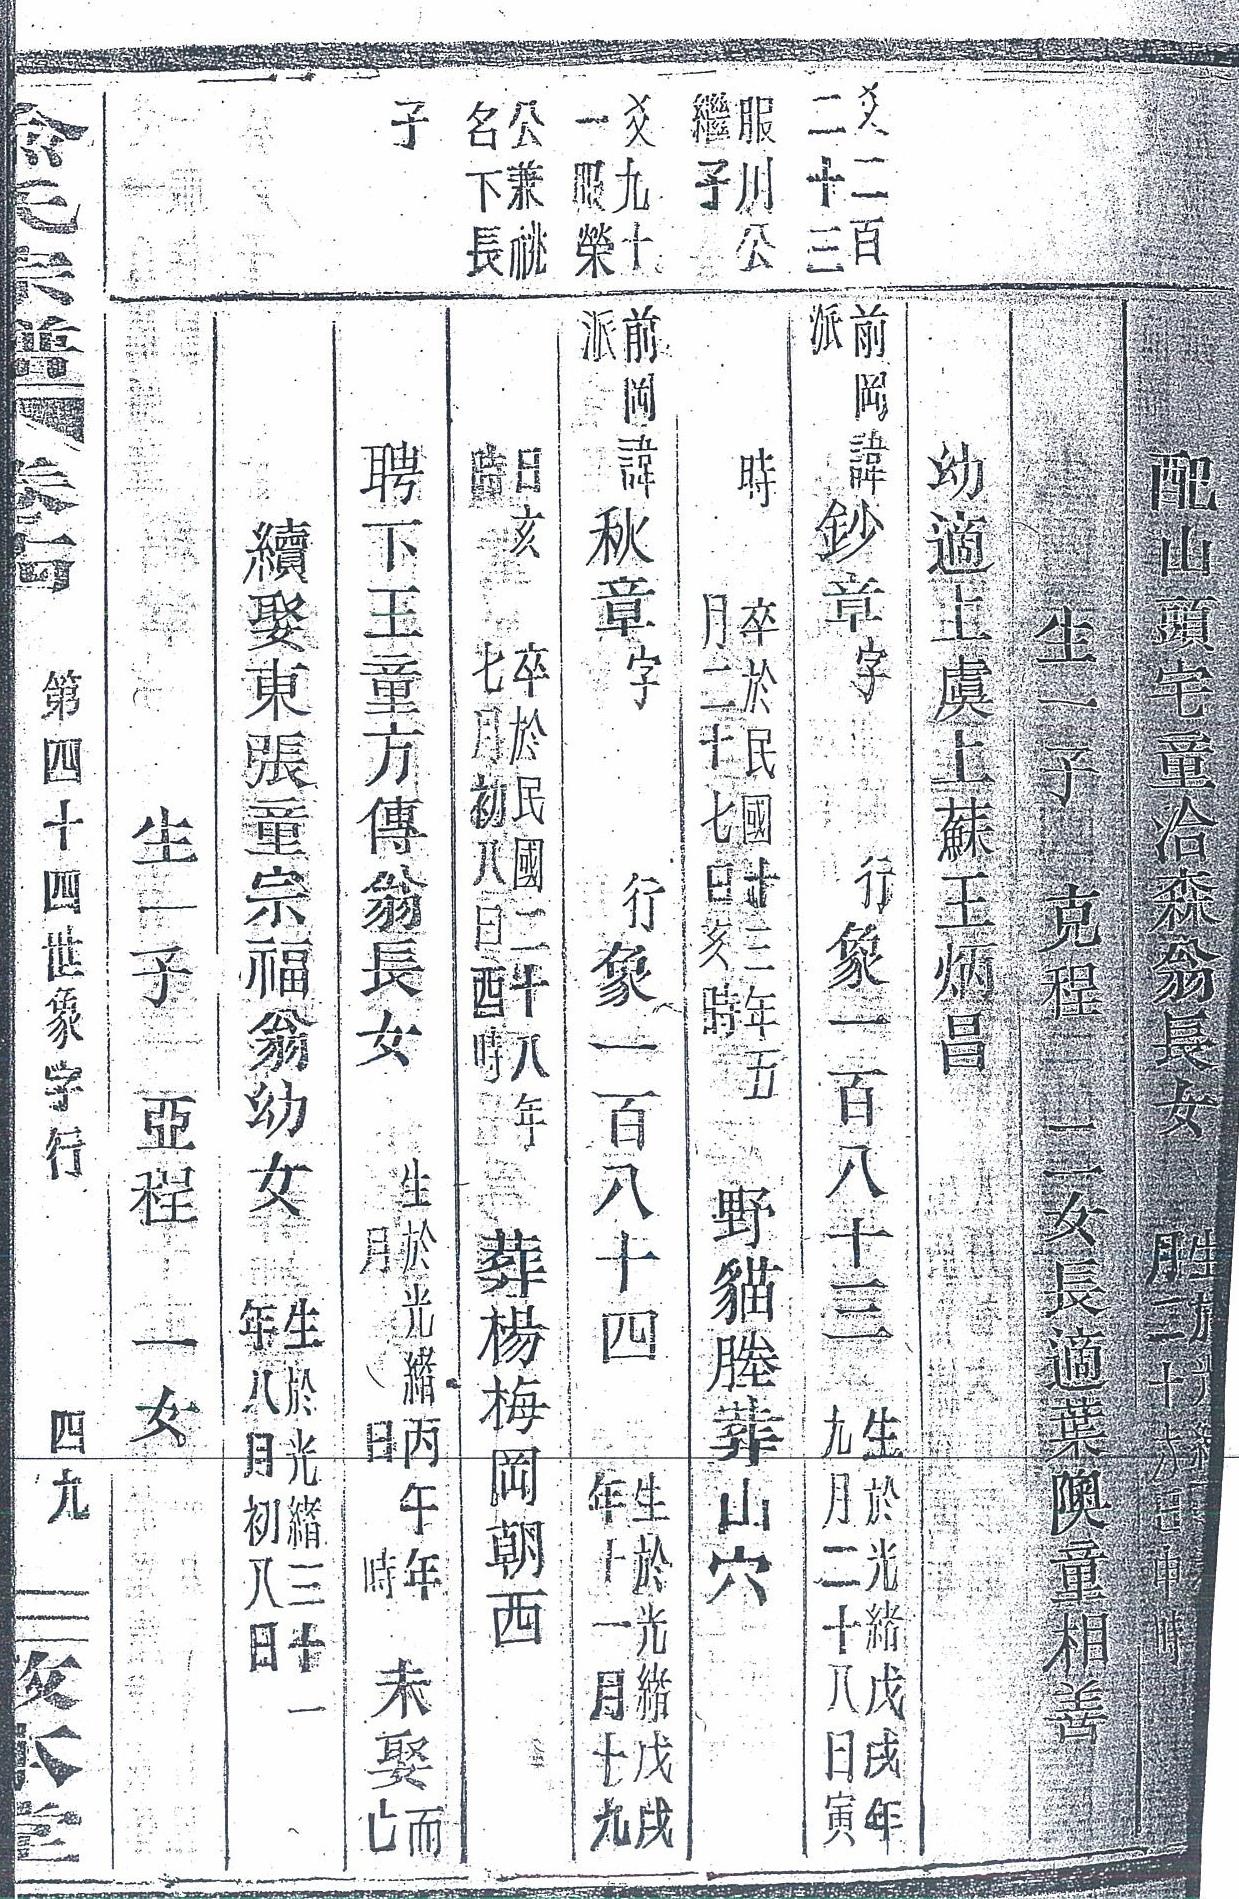 配山頭宅童洽森翁長女 生於光緒 月二十六日申時
生一子 克程 二女長適葉隩童相善
幼適上虞上蘇王炳昌
爻二百二十三
前岡派 諱鈔章 字 行象一百八十三 生於光緒戊戌年九月二十八日寅
服川公繼子
時 卒於民國廿三年五月二十七日亥時 野貓塍葬山穴
爻九十一服榮
前岡派 諱秋章 字 行象一百八十四 生於光緒戊戌年十一月十九
公兼祧名下長
日亥時 卒於民國二十八年七月初八日酉時 葬楊梅岡朝西
子
聘下王童方傳翁長女 生於光緒丙午年 月 日 時 未娶而亡
續娶東張童宗福翁幼女 生於光緒三十一年八月初八日
生一子 亞程 一女
俞氏宗譜 卷 第四十四世象字行 四九 敦本堂